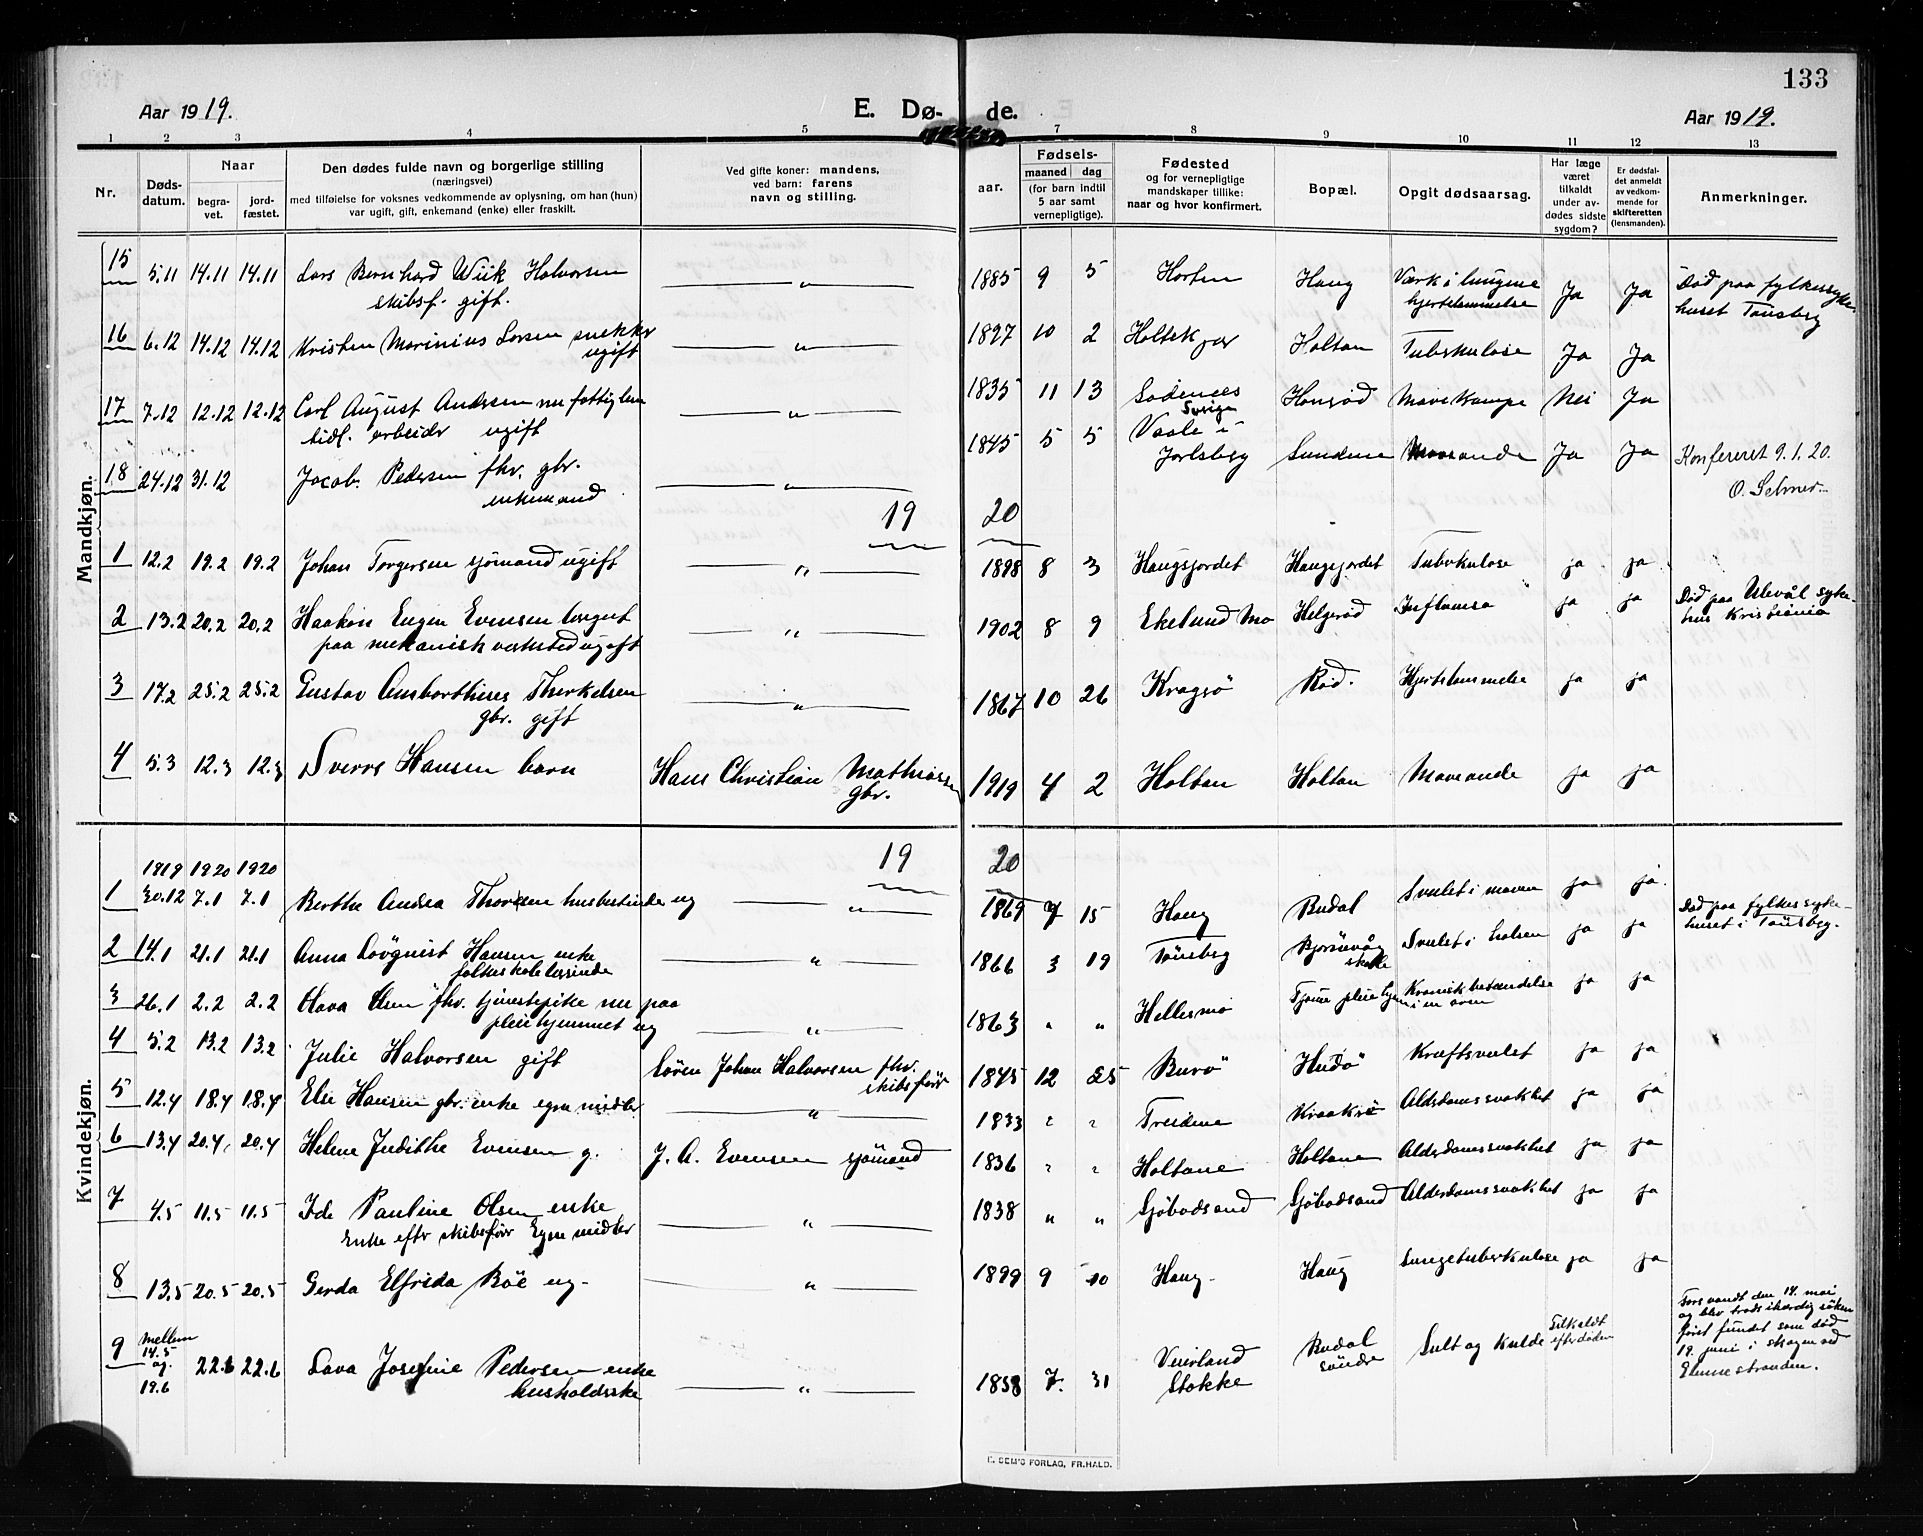 133
Aar 1919. E. Dø- de. Aar 1919.
1 2 3 4 5 7 8 9 10 11 12 13
Nr. Døds-datum. Naar begra-vet. jord-fæstet. Den dødes fulde navn og borgerlige stilling (næringsvei) med tilføielse for voksnes vedkommende av oplysning, om han (hun) var ugift, gift, enkemand (enke) eller fraskilt. Ved gifte koner: mandens, ved barn: farens navn og stilling. aar. Fødsels- maaned dag (for barn indtil 5 aar samt vernepligtige). Fødested og for vernepligtige mandskaper tillike: naar og hvor konfirmert. Bopæl. Opgit dødsaarsag. Har læge været tilkaldt under av-dødes sidste sygdom? Er dødsfal-det anmeldt av vedkom-mende for skifteretten (lensmanden). Anmerkninger.
Mandkjøn.
15 5.11 14.11 14.11 Lars Bernhard Wiik Halvorsen skibsf. gift. — " — 1885 9 5 Horten Haug Værk i lungene hjertelammelse Ja Ja Død paa fylkessyke-huset Tønsberg
16 6.12 14.12 14.12 Kristen Marinius Larsen snekker ugift — " — 1897 10 2 Holtekjær Holtan Tuberkulose Ja Ja
17 7.12 12.12 12.12 Carl August Andersen nu fattiglem tidl. arbeider ugift — " — 1835 11 13 Sverige Mavekampe Nei Ja
18 24.12 31.12 Jacob Pedersen fhv. gbr. enkemand — " — 1845 5 5 Vaale i Jarlsberg Sundene Ja Ja Konfereret 9.1.20. O. Selmer
19 20
1 12.2 19.2 19.2 Johan Torgersen sjømand ugift — " — 1898 8 3 Haugsjordet Haugsjordet Tuberkulose ja ja
2 13.2 20.2 20.2 Haakon Eugen Evensen paa mekanisk verksted ugift — " — 1902 8 9 Ekelund Mo Helgerød ja ja Død paa Ulevål syke-hus Kristiania
3 17.2 25.2 25.2 Gustav Therkelsen gbr. gift — " — 1867 10 26 Kragsö Rød. Hjertelammelse ja ja
4 5.3 12.3 12.3 Sverre Hansen barn Hans Christian Mathias gbr. 1919 4 2 Holtan Holtan Maveonde ja ja
Kvindekjøn.
1919 1920 1920 19 20
1 30.12 7.1 7.1 Berthe Andrea Thorsen husbestinde ug — " — 1869 7 15 Haug Budal Svulst i maven ja ja. Død paa fylkessyke-huset i Tønsberg.
2 14.1 21.1 21.1 Anna Lövquist Hansen enke folkeskolelærinde — " — 1866 3 19 Tönsberg skole Svulst i halsen ja ja
3 26.1 2.2 2.2 Olava Olsen fhv. tjenestepike nu paa pleiehjemmet ug — " — 1863 " " Hellesmo Tjøme pleiehjem Kronisk betændelse i en aren ja ja
4 5.2 13.2 13.2 Julie Halvorsen gift Sören Johan Halvorsen fhv. skibsfører 1845 12 25 Burö Hudö Kræftsvulst ja ja
5 12.4 18.4 18.4 Else Hansen gbr. enke egne midler — " — 1833 " " Treidene Kraakerö Alderdomssvakhet ja ja
6 13.4 20.4 20.4 Helene Judithe Evensen g. J. A. Evensen sjömand 1836 " " Holtane Holtane Alderdomssvakhet ja ja
7 4.5 11.5 11.5 Ida Pauline Olsen enke Enke efter skibsfører Egne midler — " — 1838 " " Sjöbodsand Sjöbodsand Alderdomssvakhet ja ja
8 13.5 20.5 20.5 Gerda Elfrida Röe ug- — " — 1899 9 10 Haug. Haug Lungetuberkulose ja ja
9 mellem 14.5 og 19.6 22.6 22.6 Lava Josefine Pedersen enke husholderske — " — 1858 7. 31 Veierland Stokke Budal söndre Sult og kulde Tilkaldt efter døden Forsvandt den 14. mai og blev trods ihærdig søken først fundet som død 19. juni i skogen ved Elmnestranden.
E. SEM'S FORLAG, FR.HALD.